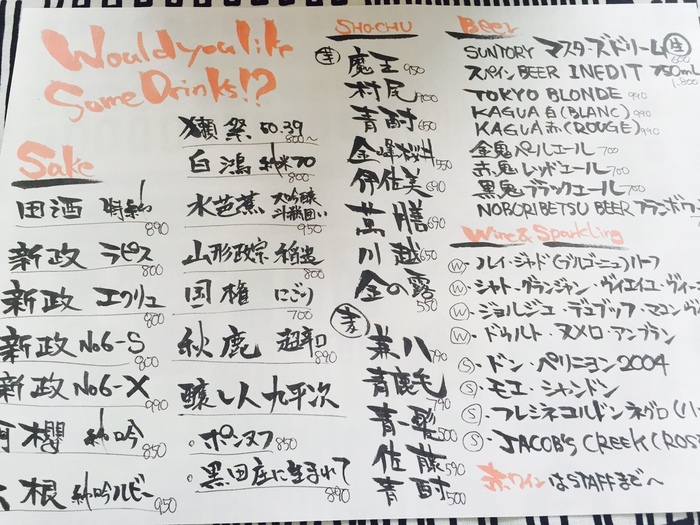 Would you like
Some Drinks!?
Sake
田酒 特純 890
新政 ラピス 800
新政 エクリュ 800
新政 No6-S 800
新政 No6-X 990
櫻 純吟 850
根 純吟ルビー 950
獺祭 50.39 800〜
白鴻 純米70 800
水芭蕉 大吟醸 斗瓶囲い 950
山形政宗 稲造 800
国権 にごり 700
秋鹿 超辛口 890
醸し人九平次
・ポンヌフ 850
・黒田庄に生まれて 890
SHO-CHU
芋
魔王 950
村尾
青酎 650
金峰櫻井 550
伊佐美 690
萬膳 690
川越 650
金の露 550
麦
兼八 790
青鹿毛 740
青一髪 500
佐藤 590
青酎 500
Beer
SUNTORY マスターズドリーム 生 600
スペイン BEER INEDIT 750ml 1.800
TOKYO BLONDE 990
KAGUA 白(BLANC) 990
KAGUA 赤(ROUGE) 990
金鬼ペールエール 700
赤鬼レッドエール 700
黒鬼ブラックエール 700
NOBORIBETSU BEER フランボワー
Wine & Sparkling
W・ルイ・ジャド(ブルゴーニュ)ハーフ
W・シャトー・グランジャン・ヴィエイユ・ヴィー
W・ジョルジュ・デュブッフ・マコンヴ
W・ドゥルト・ヌメロ・アンブラン
S・ドン・ペリニヨン2004
S・モエ・シャンドン
S・フレシネコルドンネグロ(ハー
S・JACOB'S CREEK(ROS
赤ワインはSTAFFまで〜